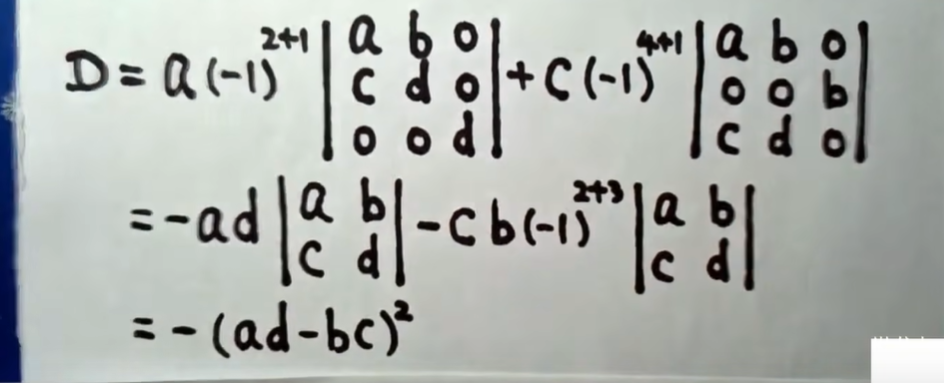 D = a(-1)^{2+1} \begin{vmatrix} a & b & 0 \\ c & d & 0 \\ 0 & 0 & d \end{vmatrix} + c(-1)^{4+1} \begin{vmatrix} a & b & 0 \\ 0 & 0 & b \\ c & d & 0 \end{vmatrix}
= -ad \begin{vmatrix} a & b \\ c & d \end{vmatrix} - cb(-1)^{2+3} \begin{vmatrix} a & b \\ c & d \end{vmatrix}
= -(ad-bc)^2